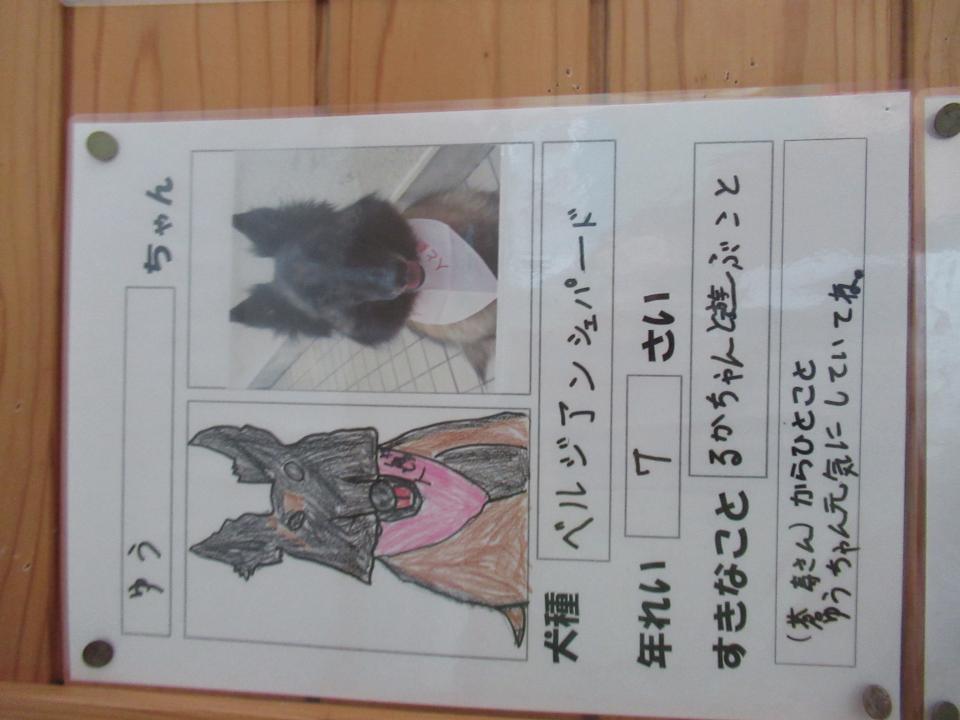 ゆう ちゃん
犬種 ベルジアンシェパード
年れい 7 さい
すきなこと るかちゃんと遊ぶこと
さん)からひとこと
ゆうちゃん元気にしていてね。